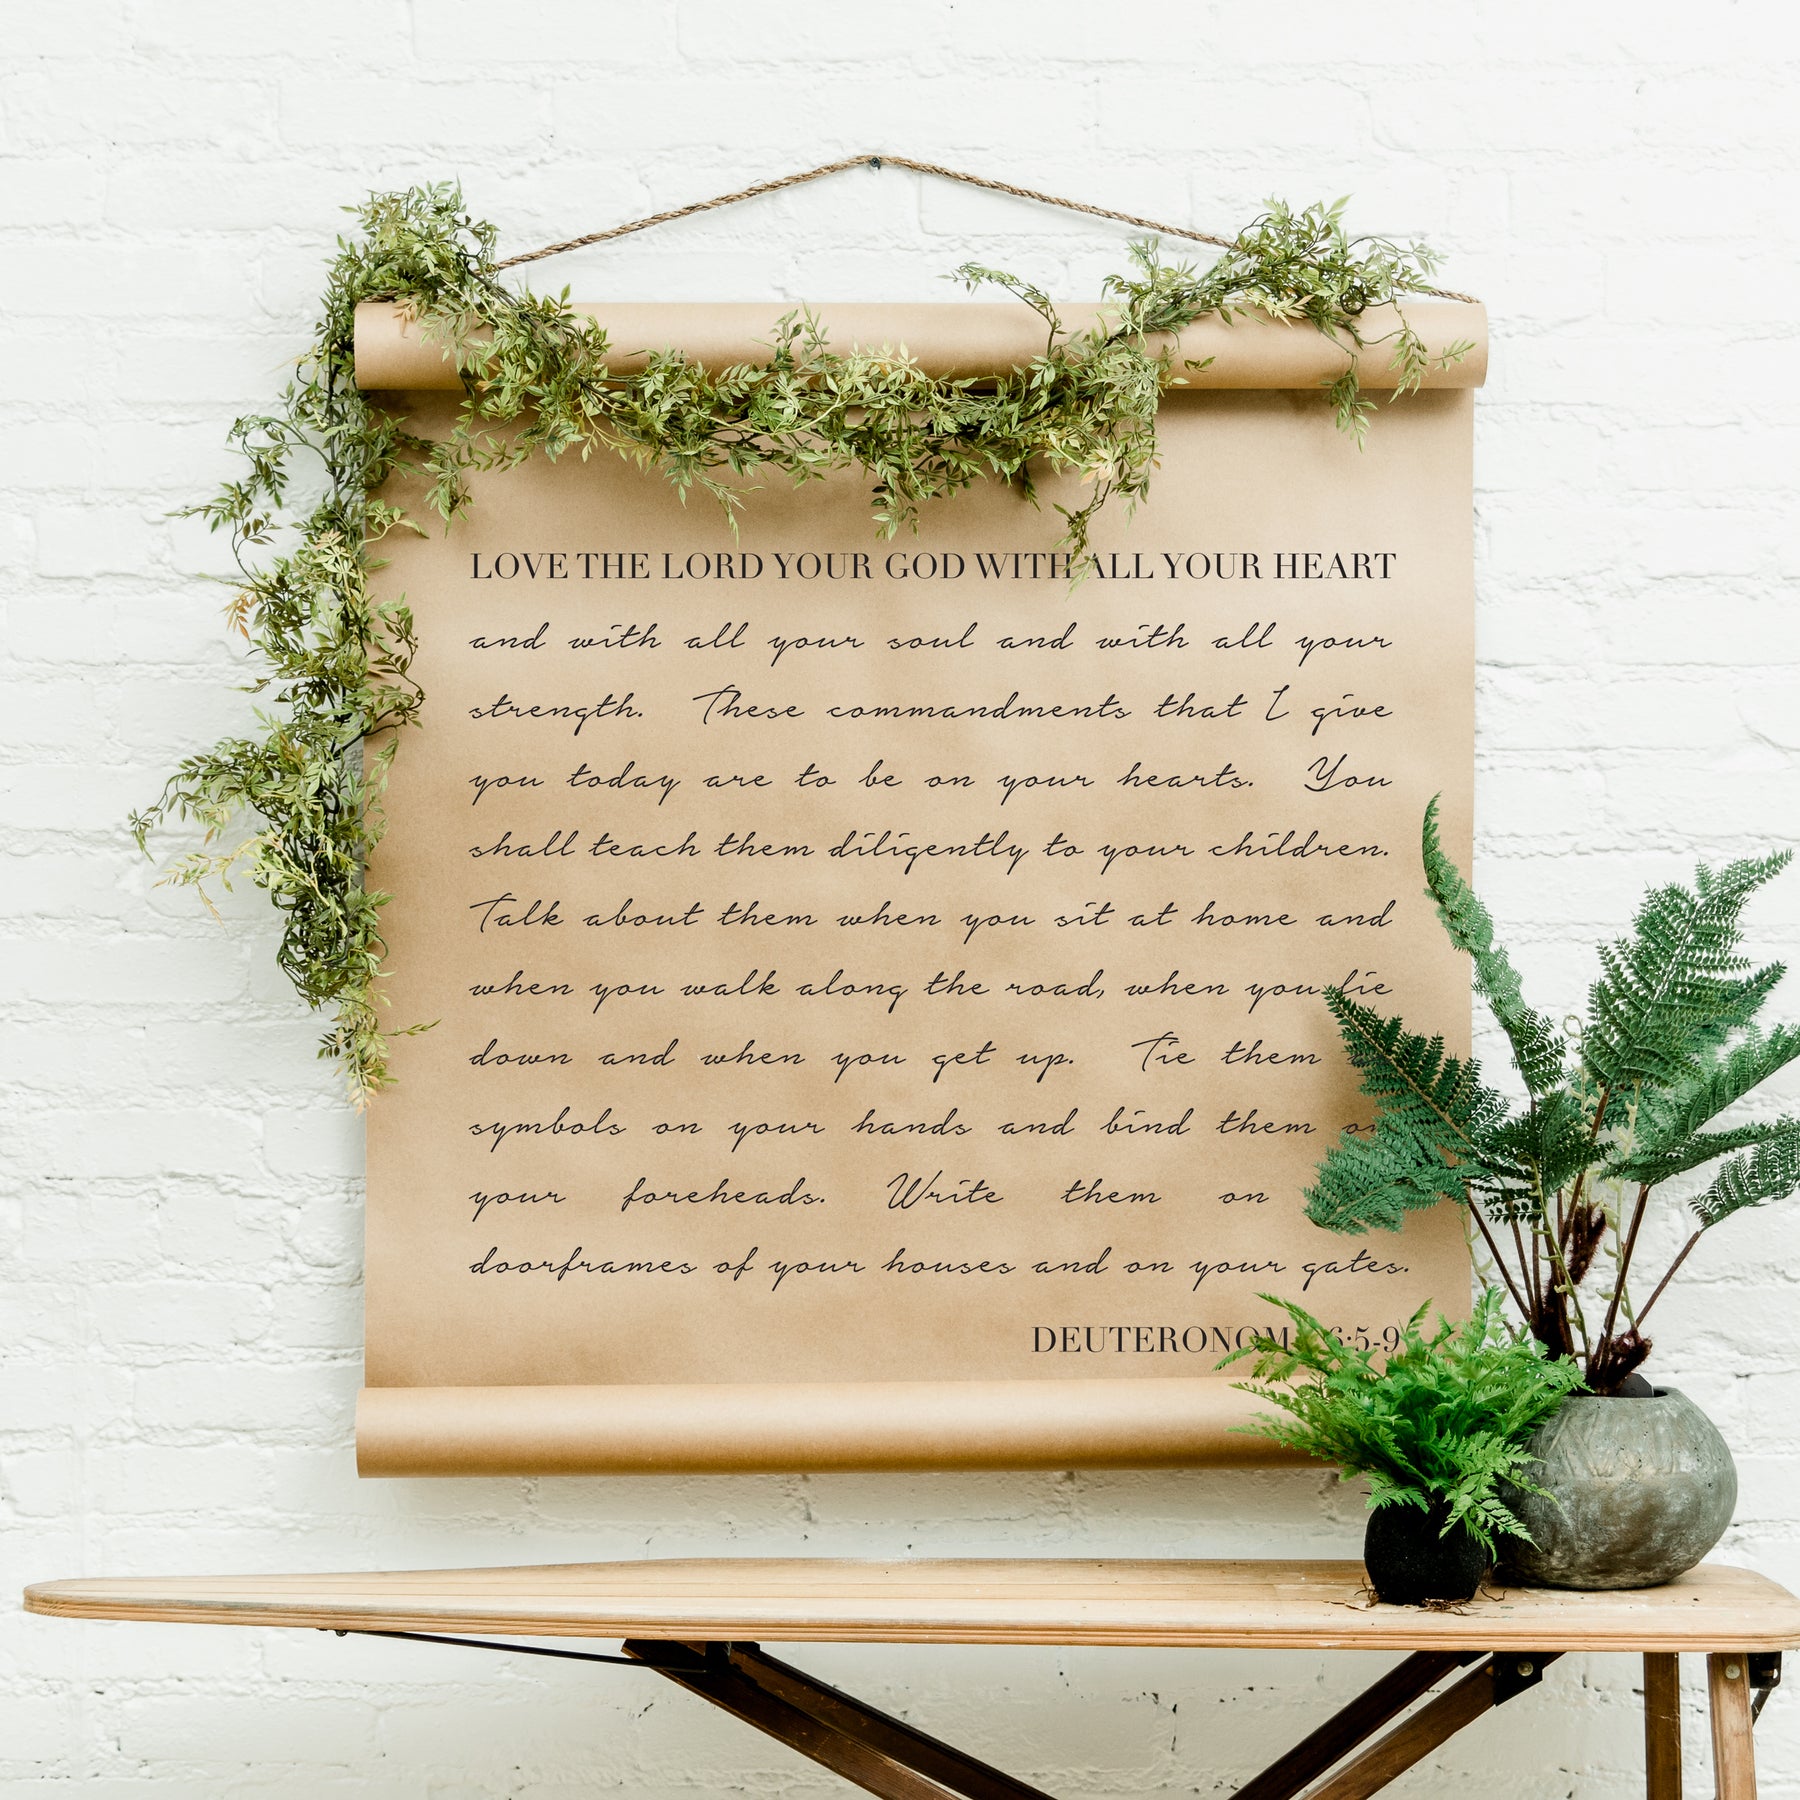 LOVE THE LORD YOUR GOD WITH ALL YOUR HEART
and with all your soul and with all your
strength. These commandments that I give
you today are to be on your hearts. You
shall teach them diligently to your children.
Talk about them when you sit at home and
when you walk along the road, when you lie
down and when you get up. Tie them
symbols on your hands and bind them on
your foreheads. Write them on
doorframes of your houses and on your gates.
DEUTERONOMY 6:5-9